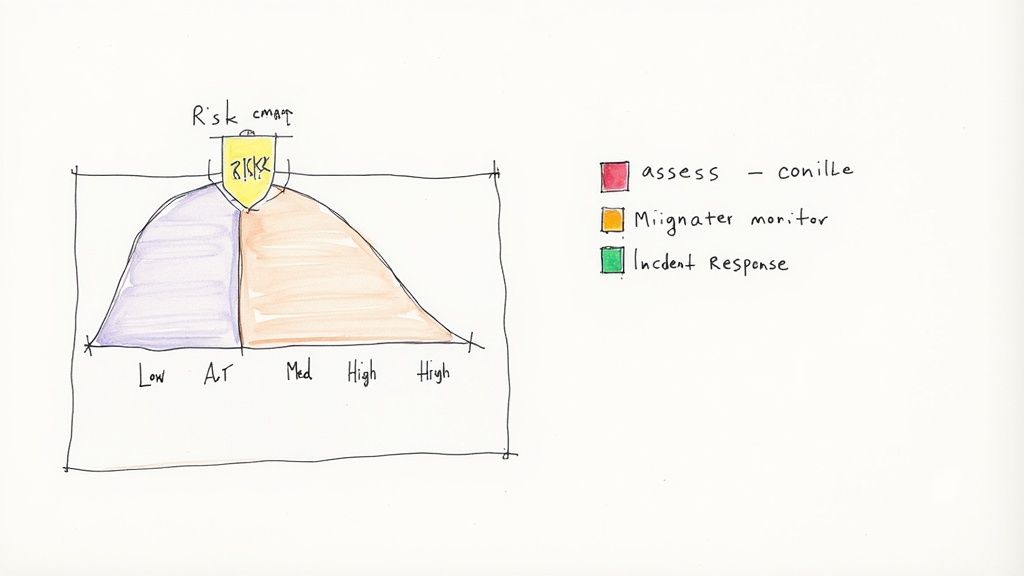 Risk cmap
RISK
Low Ar Med High High
assess – conille
Miignater monitor
Incdent Response